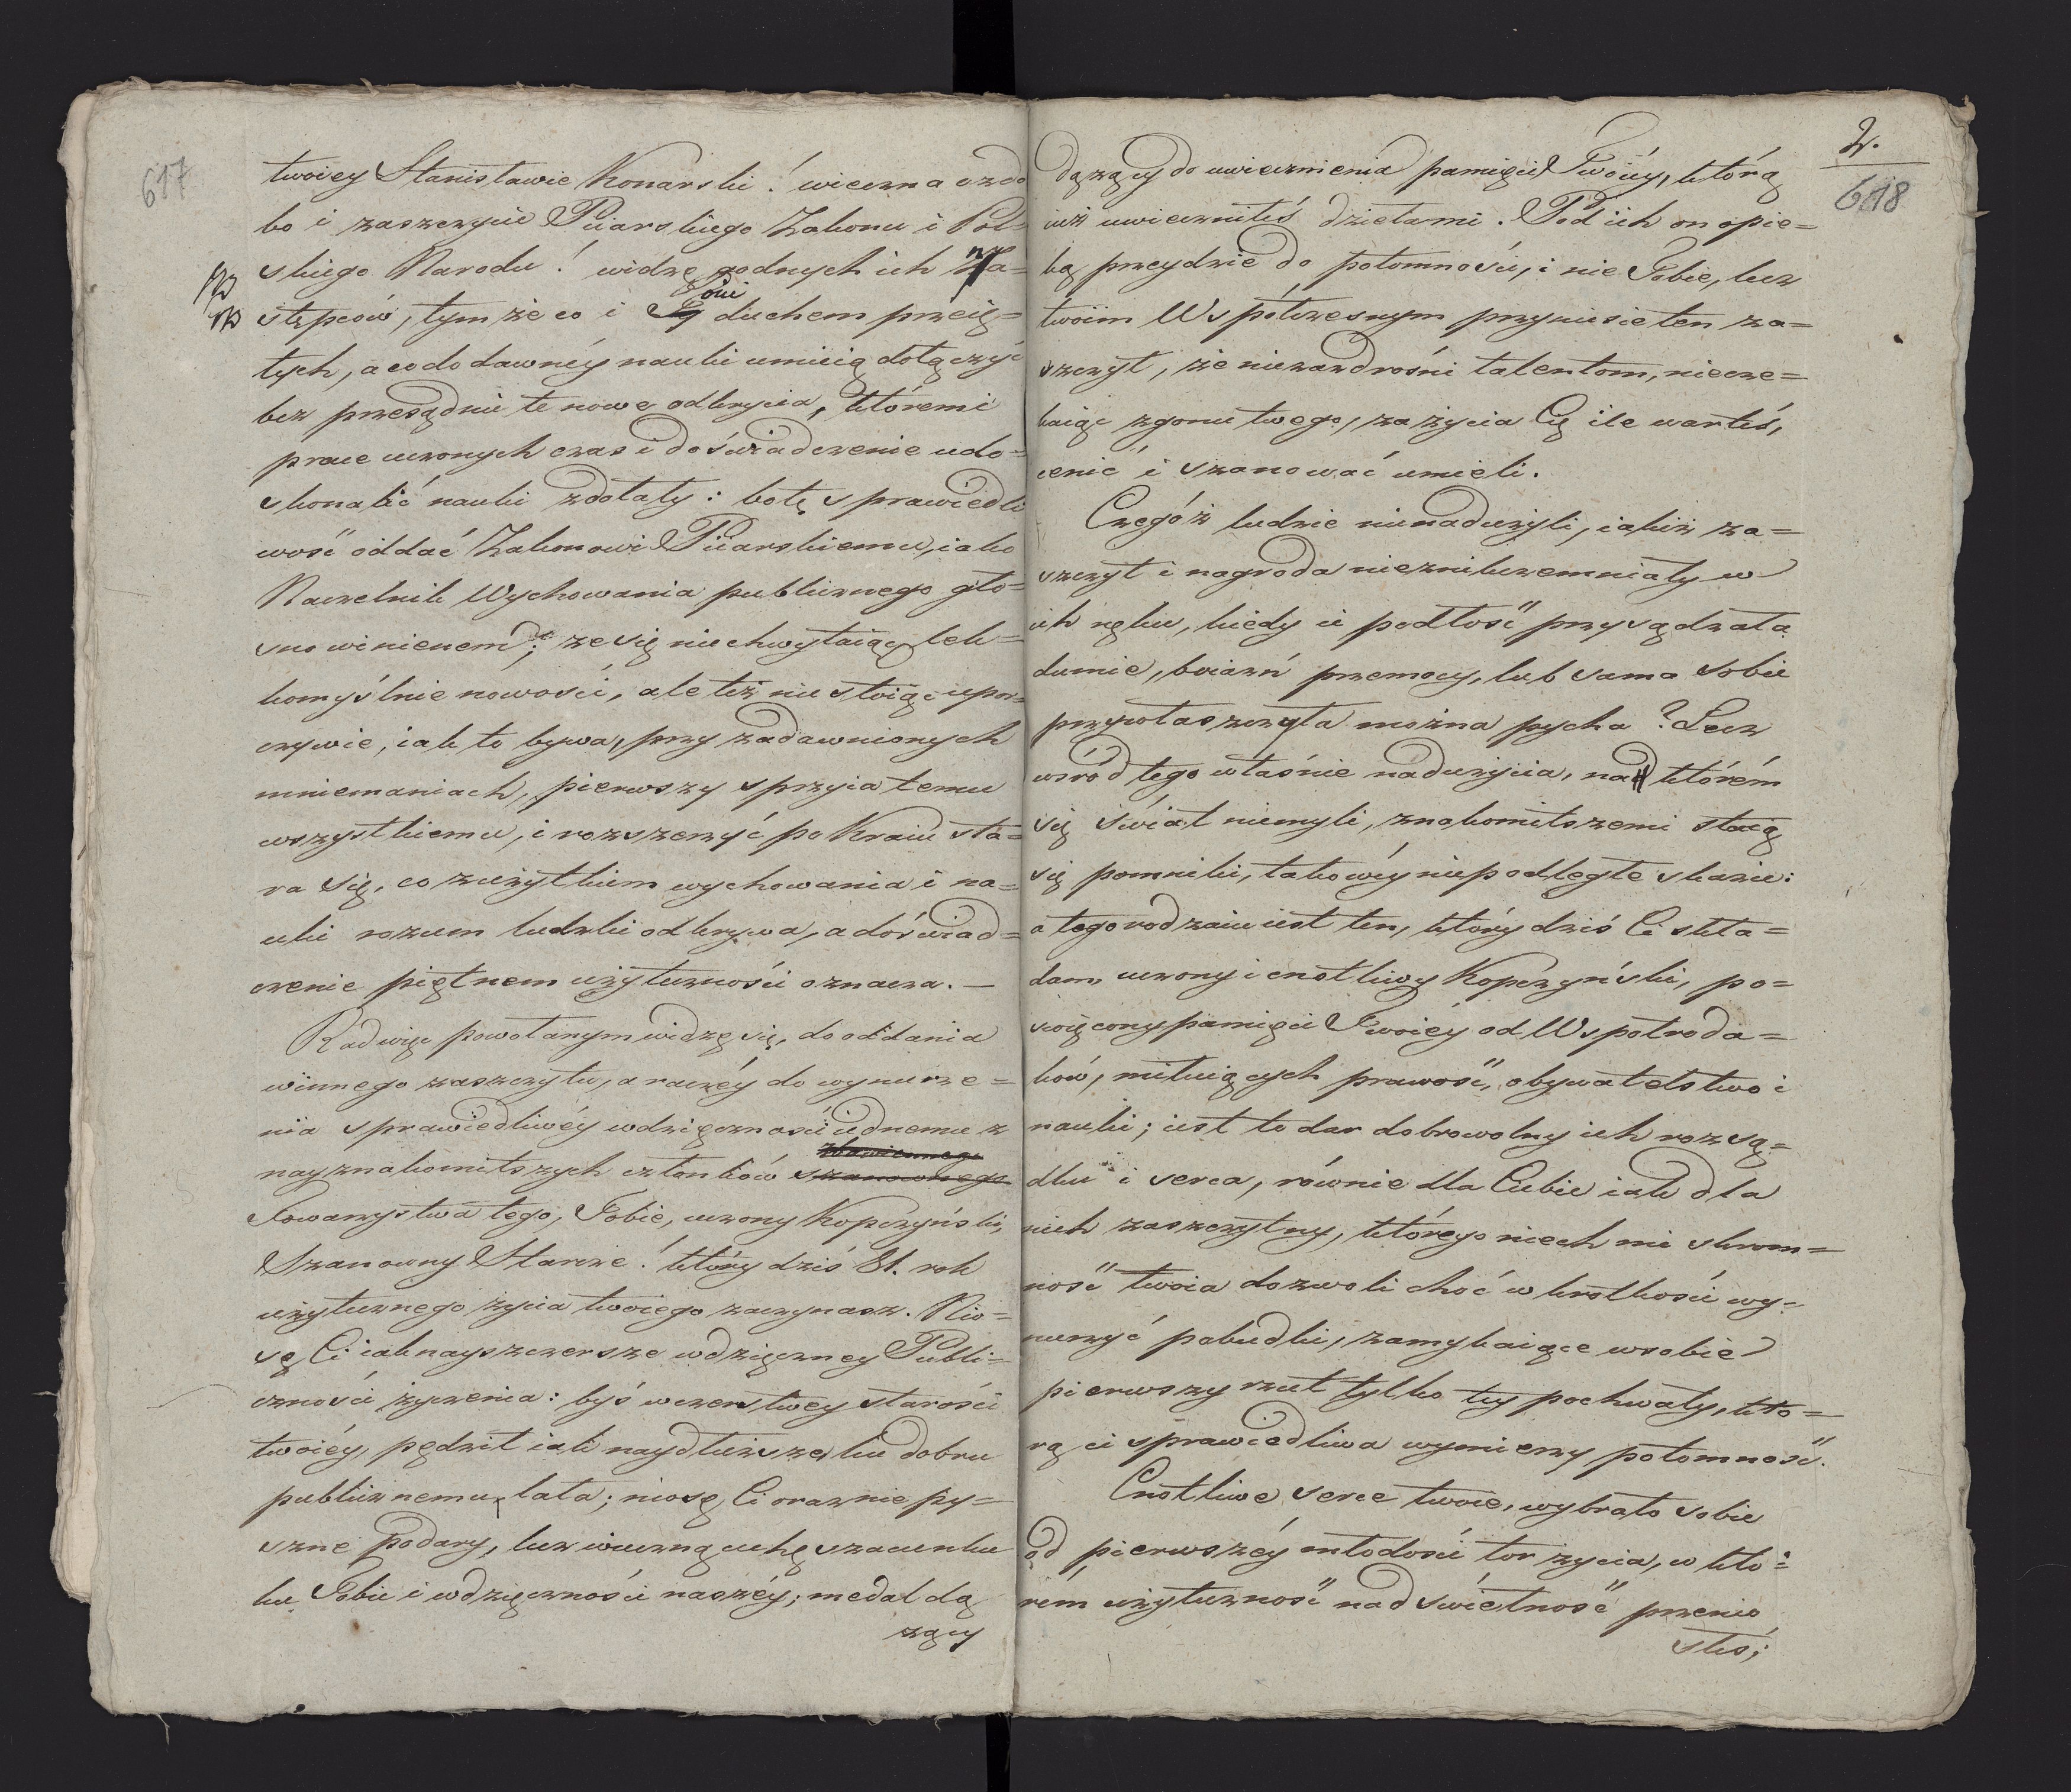 617
twoiey Stanisławie Konarski! wieczna ozdo
bo i zaszczycie Piiarskiego Zakonu i Pol=
skiego Narodu! widzę godnych ich na=
stępców, tym że co i oni duchem przeię=
tych, a co do dawnéy nauki umieią dołączyć
bez przesądnie te nowe odkrycia, któremi
prace uczonych czas i doświadczenie udo=
skonalić nauki zdołały: bo tę sprawiedli
wość oddać Zakonowi Piiarskiemu, iako
Naczelnik Wychowania publicznego gło=
sno winienem; że się nie chwytaiąc lek=
komyślnie nowości, ale też nie stoiąc upor=
czywie, iak to bywa, przy zadawnionych
mniemaniach, pierwszy sprzyia temu
wszystkiemu, i rozszerzyć po Kraiu sta=
ra się, co z użytkiem wychowania i na=
uki rozum ludzki odkrywa, a doświad=
czenie piętnem użyteczności oznacza. —
Rad więc powołanym widzę się, do oddania
winnego zaszczytu, a raczéy do wynurze=
nia sprawiedliwéy wdzięczności iednemu z
nayznakomitszych członków szanownego
Towarzystwa tego, Tobie, uczony Kopczyński,
Szanowny Starcze! który dziś 81. rok
użytecznego życia twoiego zaczynasz. Nio=
sę Ci iak nayszczersze wdzięczney Publi=
czności życzenia: byś w czerstwey starości
twoiéy, pędził iak naydłuższe, ku dobru
publicznemu lata; niosę Ci oraz nie py=
szne podary, lecz wieczną cechę szacunku
ku Tobie i wdzięczności naszéy; medal dą
żący
2.
618
dążący do uwiecznienia pamięci Twoiéy, którą
iuż uwieczniłeś dziełami. Pod ich on opie=
ką przeydzie do potomności, i nie Tobie, lecz
twoim Współczesnym przyniesie ten za=
szczyt, że niezazdrośni talentom, niecze=
kaiąc zgonu twego, za życia Cię ile wartéś,
cenić i szanować umieli.
Czegóż ludzie nienadużyli, iakiż za=
szczyt i nagroda nieznikczemniały w
ich ręku, kiedy ie podłość przysądzała
dumie, boiaźń przemocy, lub sama sobie
przywłaszczyła można pycha? Lecz
wśród tego właśnie nadużycia, na którém
się świat niemyli, znakomitszemi staią
się pomniki, takowéy niepodległe skazie:
a tego rodzaiu iest ten, który dziś Ci skła=
dam uczony i cnotliwy Kopczyński, po=
święcony pamięci Twoiéy od Wspołroda=
ków, miłuiących prawość, obywatelstwo i
nauki; iest to dar dobrowolny ich rozsą=
dku i serca, równie dla Ciebie iak dla
nich zaszczytny, którego niech mi skrom=
ność twoia dozwoli choć w krotkości wy=
nurzyć pobudki, zamykaiące w sobie
pierwszy rzut tylko téy pochwały, któ=
rą ci sprawiedliwa wymierzy potomność.
Cnotliwe serce twoie, wybrało sobie
od pierwszéy młodości tor życia, w któ=
rém użyteczność nad świetność przenio
słeś;